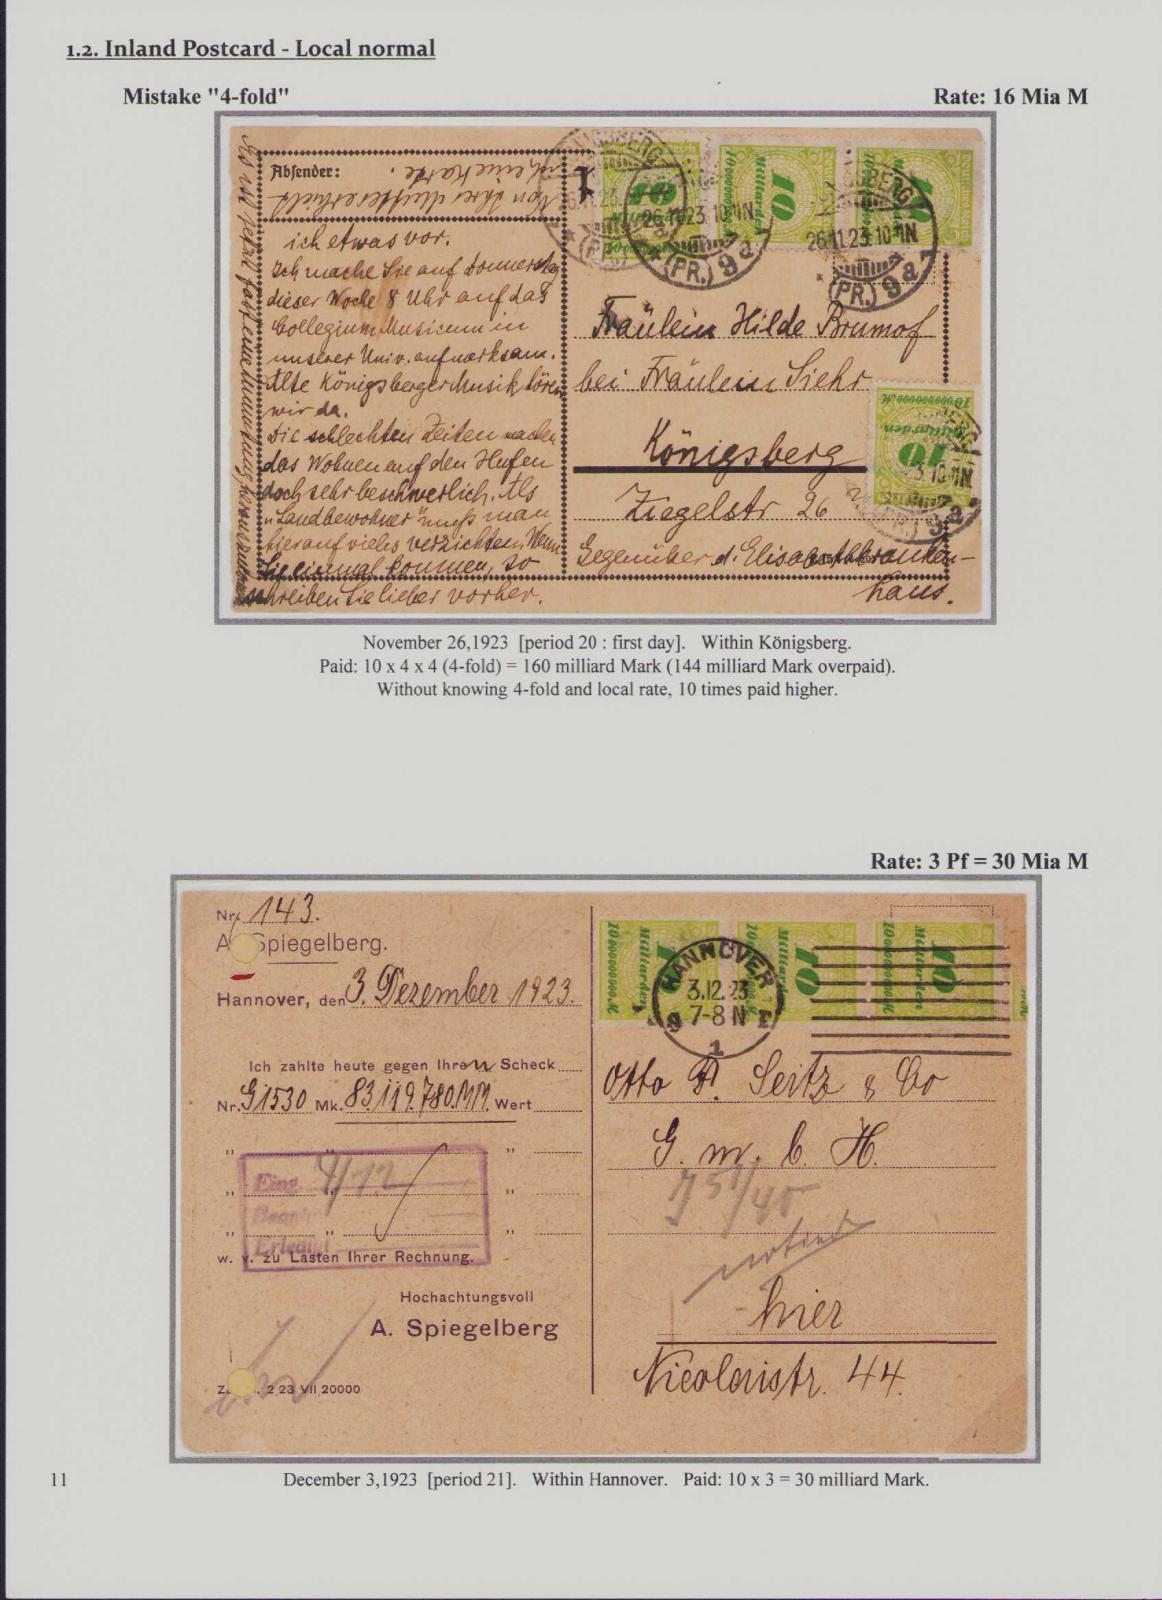 1.2. Inland Postcard - Local normal
Mistake "4-fold"
Rate: 16 Mia M
Absender:
Von Ihrer
meine Karte.
ich etwas vor.
Ich mache Sie auf Donnerstag
dieser Woche 8 Uhr auf das
Collegium Musicum in
unserer Univ. aufmerksam.
Alte Königsberger Musik hören
wir da.
Die schlechten Zeiten machen
das Wohnen auf den Hufen
doch sehr beschwerlich. Als
"Landbewohner" muß man
hierauf vieles verzichten. Wenn
Sie einmal kommen, so
schreiben Sie lieber vorher.
10 Milliarden
10 Milliarden
10
26.11.23.10-11N
26.11.23.10-11N
(PR.) 9a
(PR.) 9a
Fräulein Hilde Brumof
bei Fräulein Siehr
10000000000 M.
Milliarden
10
Königsberg
Ziegelstr 26
Gegenüber d. Elisabethkranken-
haus.
November 26,1923 [period 20 : first day]. Within Königsberg.
Paid: 10 x 4 x 4 (4-fold) = 160 milliard Mark (144 milliard Mark overpaid).
Without knowing 4-fold and local rate, 10 times paid higher.
Rate: 3 Pf = 30 Mia M
Nr. 143.
A. Spiegelberg.
Hannover, den 3. Dezember 1923.
Ich zahlte heute gegen Ihren Scheck
Nr. G1530 Mk. 83.119.780.MM. Wert
Eing. 4/12
Erledigt
w. v. zu Lasten Ihrer Rechnung.
Hochachtungsvoll
A. Spiegelberg
2 23 VII 20000
10 Milliarden
10 Milliarden
10 Milliarden
HANNOVER
3.12.23
7-8 N
1
Otto F. Seitz & Co
G. m. b. H.
hier
Nicolaistr. 44.
11
December 3,1923 [period 21]. Within Hannover. Paid: 10 x 3 = 30 milliard Mark.